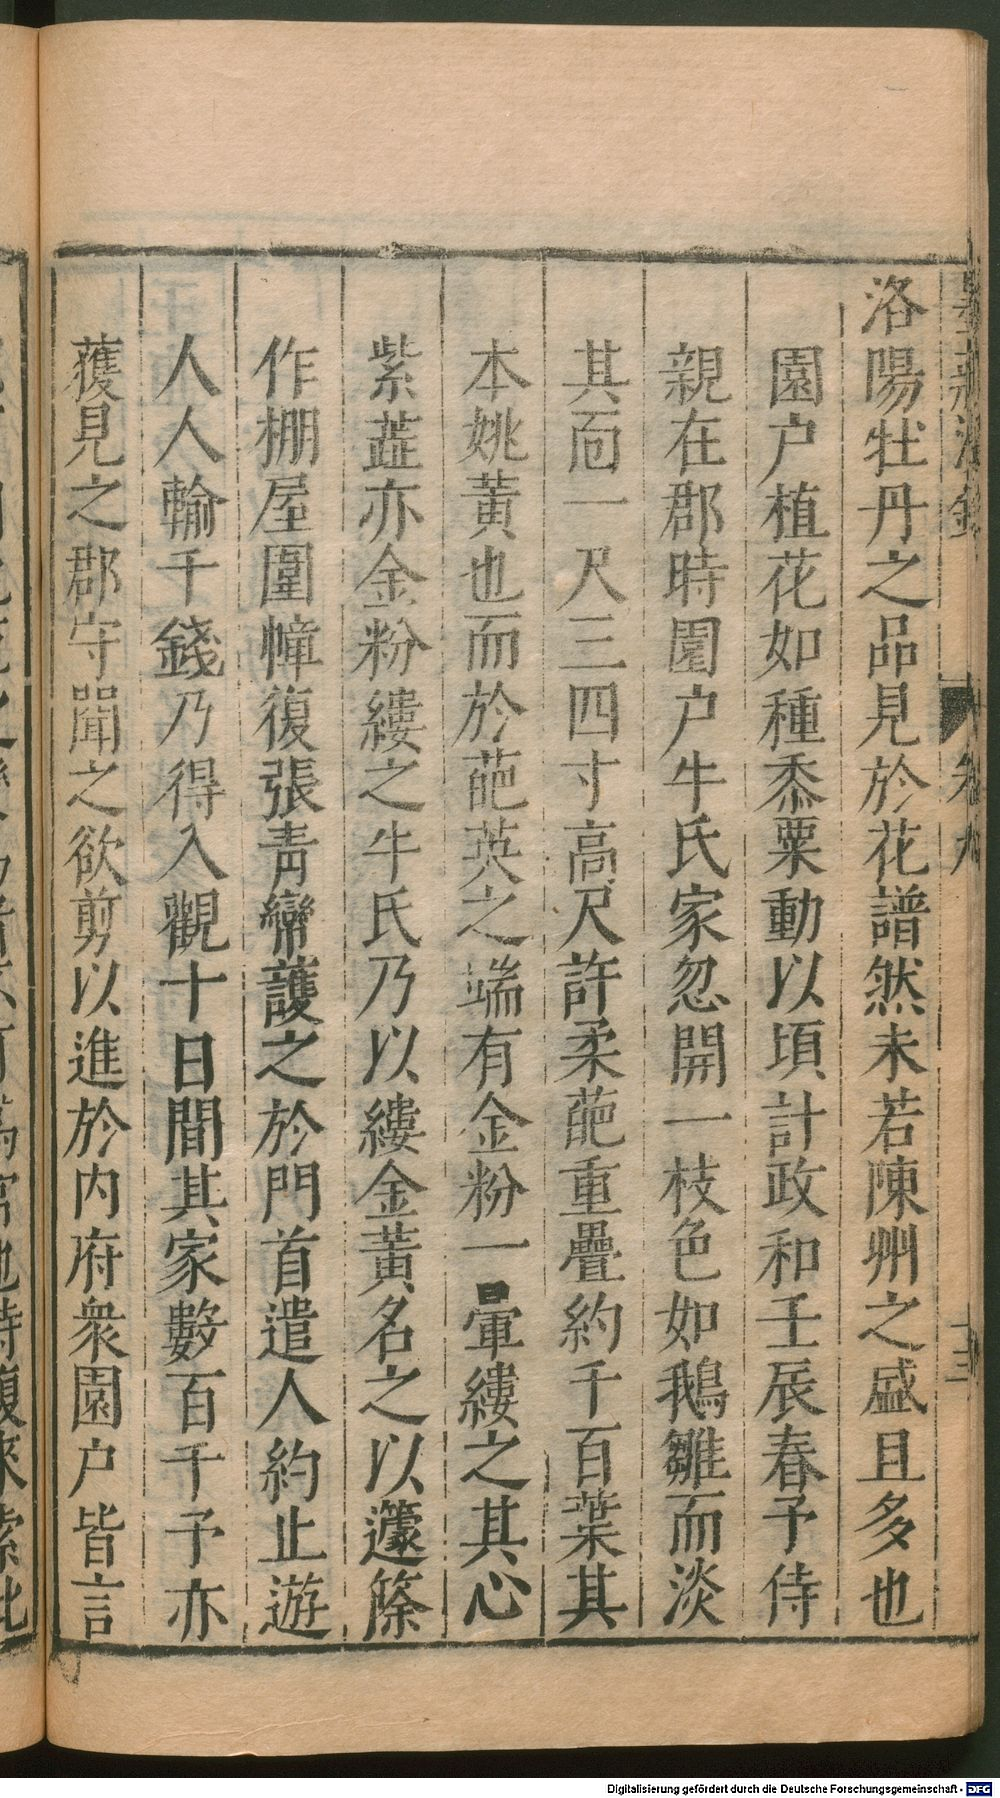 洛陽牡丹之品見於花譜然未若陳州之盛且多也
園户植花如種黍粟動以頃計政和壬辰春予侍
親在郡時園户牛氏家忽開一枝色如鵝雛而淡
其面一尺三四寸高尺許柔葩重疊約千百葉其
本姚黃也而於葩英之端有金粉一暈縷之其心
紫蘂亦金粉縷之牛氏乃以縷金黃名之以籧篨
作棚屋圍幛復張青帟護之於門首遣人約止遊
人人輸千錢乃得入觀十日間其家數百千予亦
獲見之郡守聞之欲剪以進於内府衆園户皆言
卷九
十三
Digitalisierung gefördert durch die Deutsche Forschungsgemeinschaft - DFG